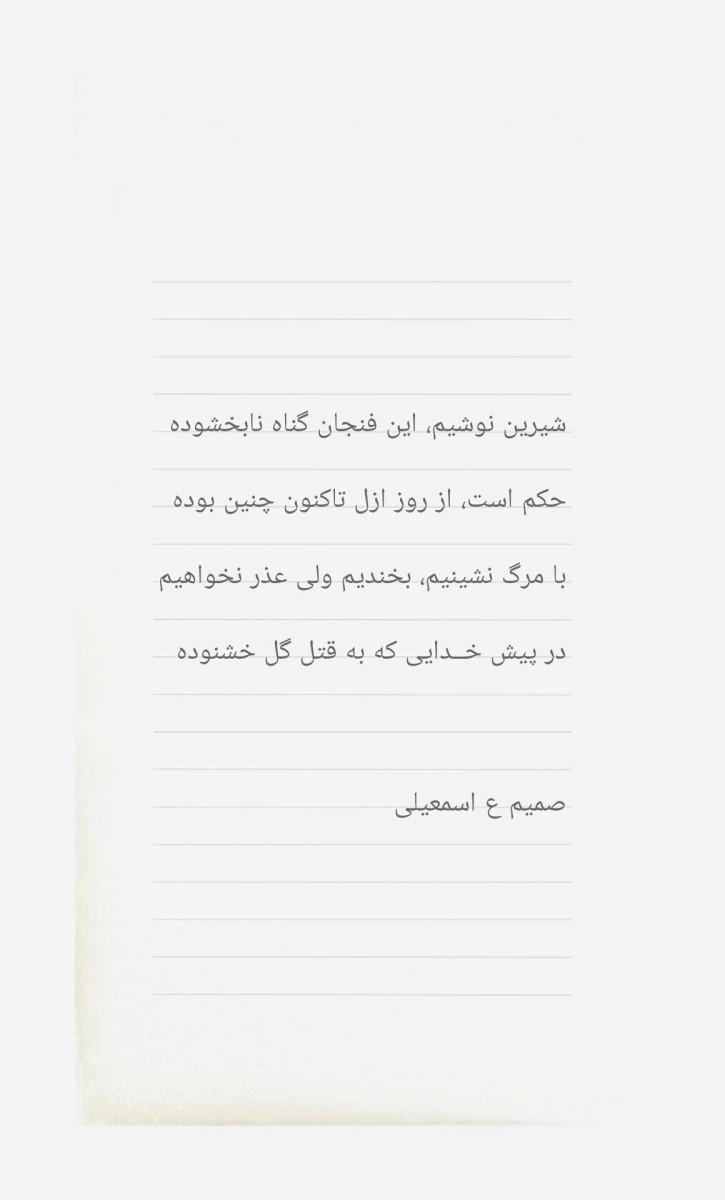 شیرین نوشیم، این فنجان گناه نابخشوده
حکم است، از روز ازل تاکنون چنین بوده
با مرگ نشینیم، بخندیم ولی عذر نخواهیم
در پیش خـدایی که به قتل گل خشنوده
صمیم ع اسمعیلی